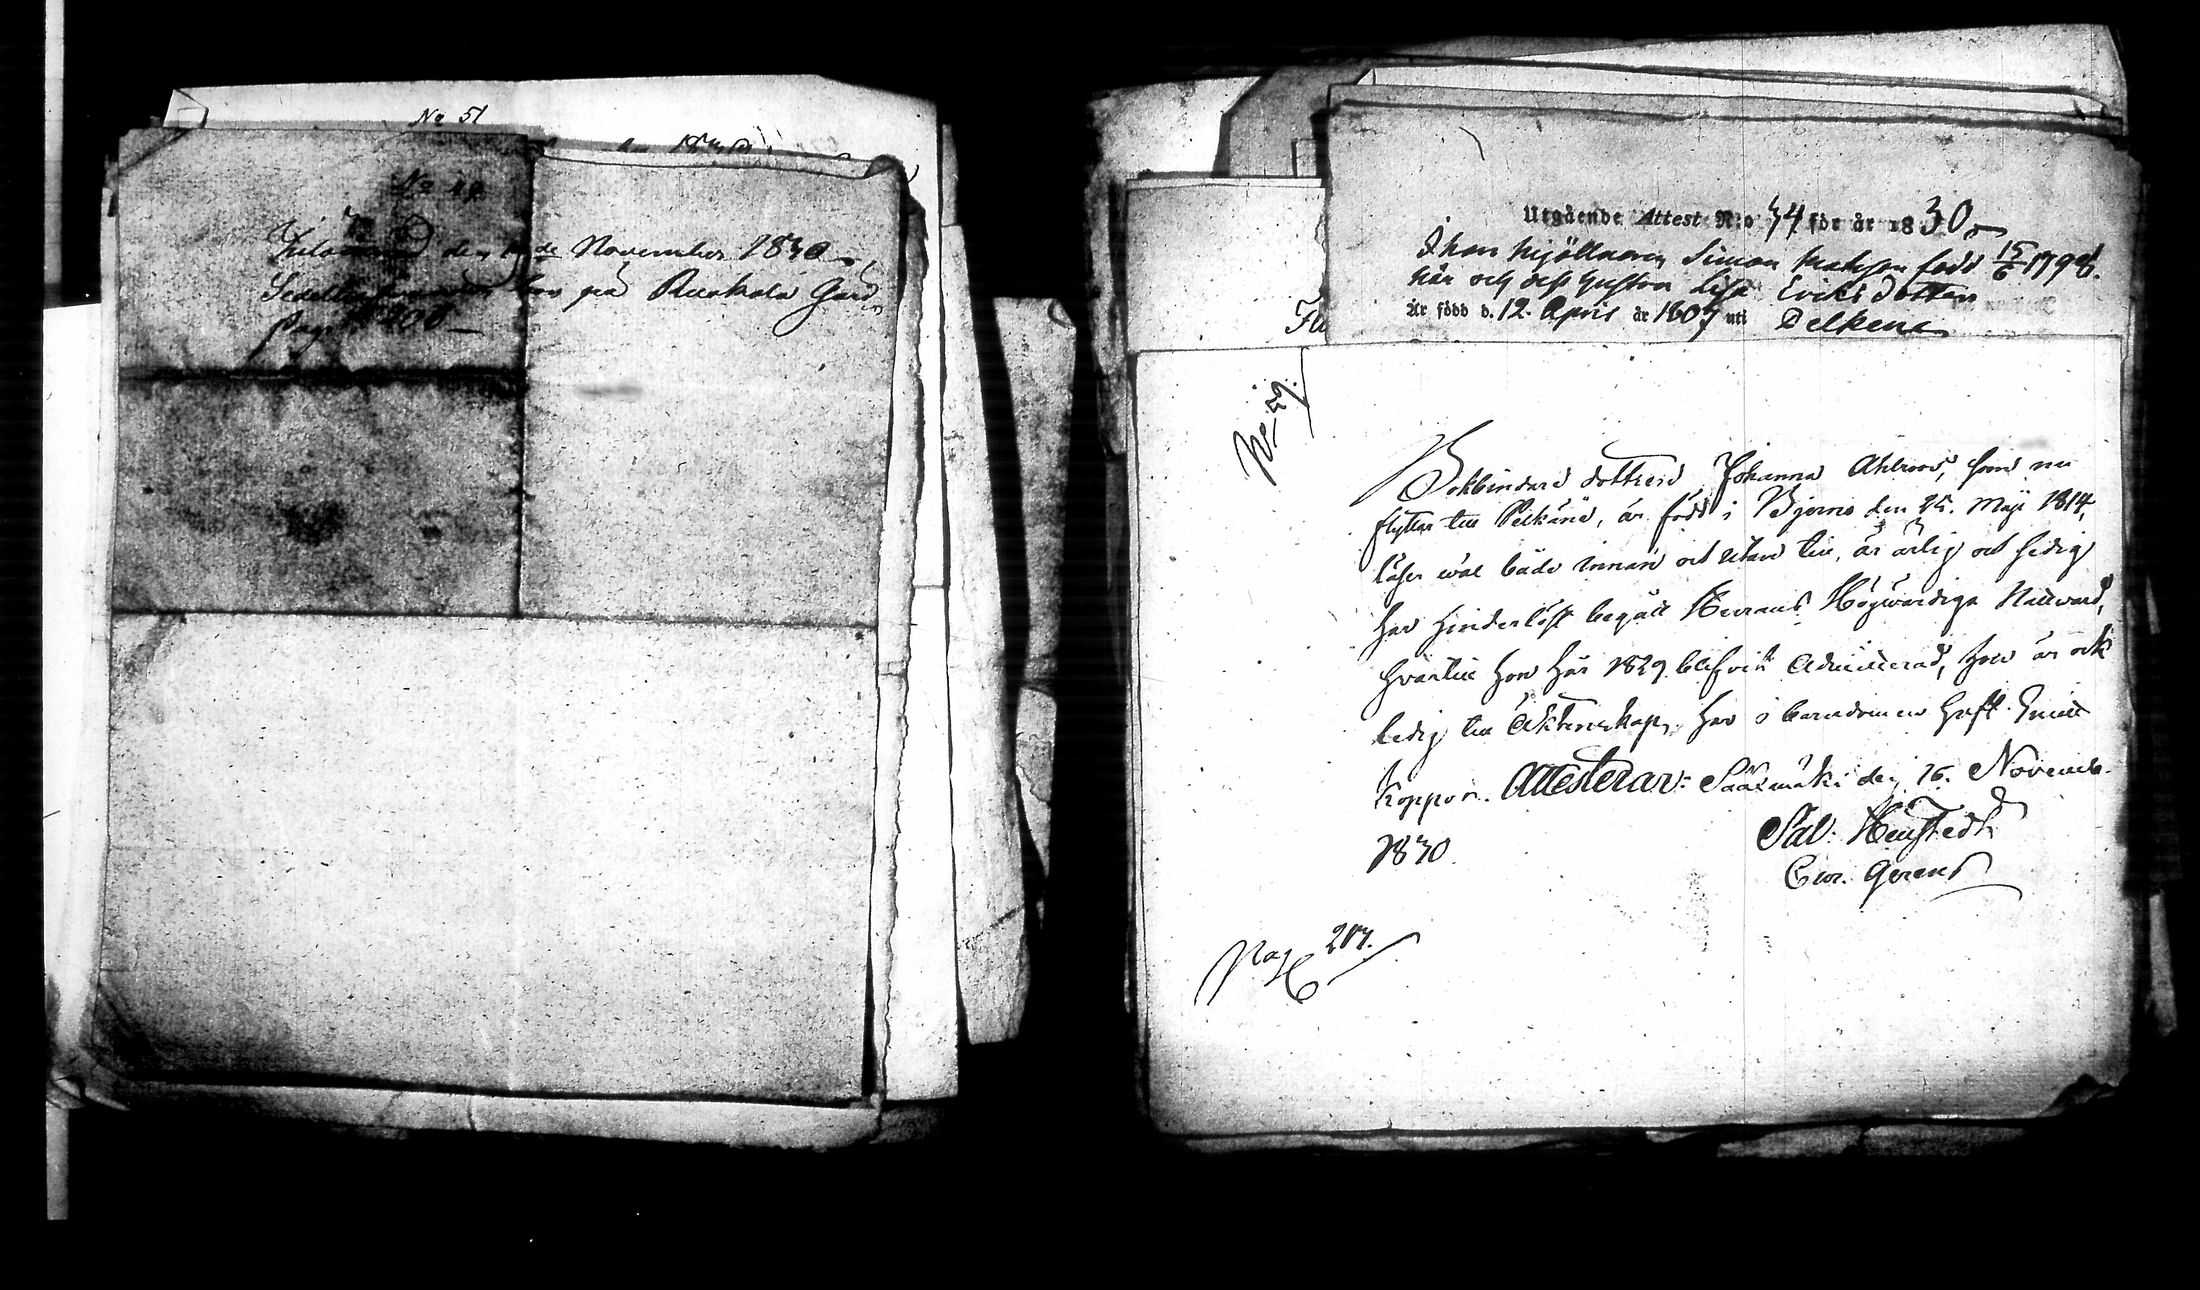 No 51
No 49
Inlemnad den de November 1830
på Ruokola Gård
Pag 200
Utgående Attest N:o 54 för år 1830
Mjöllnaren Simon Matsson född 15/6 179
här och dess hustru Lisa Eriksdotter
är född d. 12 April år 1807 uti Pelkene
No
Bokbindare dottren Johanna Ahlroos, som nu
flyttar till Pelkäne, är född i Bjerno den 25. Maji 1814,
läser wäl både innan och utan till, är ärlig och sedig
har hinderlöst begått Herrans Högwärdiga Nattward,
hvartill hon här 1829 blifvit admitterad, hon är ock
ledig till Äktenskap, har i barndomen haft
koppor. Attesterar: Sääxmäki den 16. Novemb.
1830.
Sal:
Cur. Gerens
Pag 207.